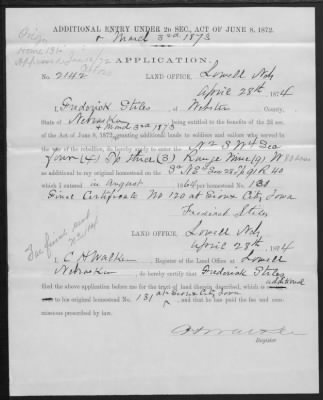 ADDITIONAL ENTRY UNDER 2D SEC. ACT OF JUNE 8, 1872.
& March 3rd 1873
APPLICATION.
No. 2142 LAND OFFICE, Lowell Neb
April 28th 1874
I, Frederick Stiles, of Webster County,
State of Nebraska being entitled to the benefits of the 2d sec.
& March 3rd 1873
of the Act of June 8, 1872, granting additional lands to soldiers and sailors who served in
the war of the rebellion, do hereby enter the N 2 Sec
four (4) Tp three (3) Range Nine (9) W
as additional to my original homestead on the
which I entered in August 1868 per No. 131
Final Certificate No 120 at Sioux City Iowa
Frederick Stiles
LAND OFFICE, Lowell Neb
April 28th, 1874
I, C A Walker, Register of the Land Office at Lowell
Nebraska, do hereby certify that Frederick Stiles
filed the above application before me for the tract of land therein described, which is additional
to his original homestead No. 131 at Sioux City Iowa, and that he has paid the fee and com-
missions prescribed by law.
Register